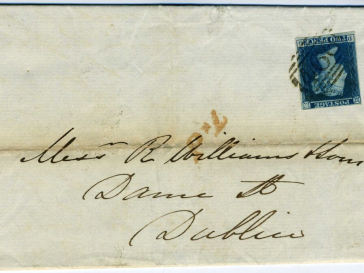 POSTAGE
TWO PENCE
Mess^rs R Williams & Son
Dame St
Dublin